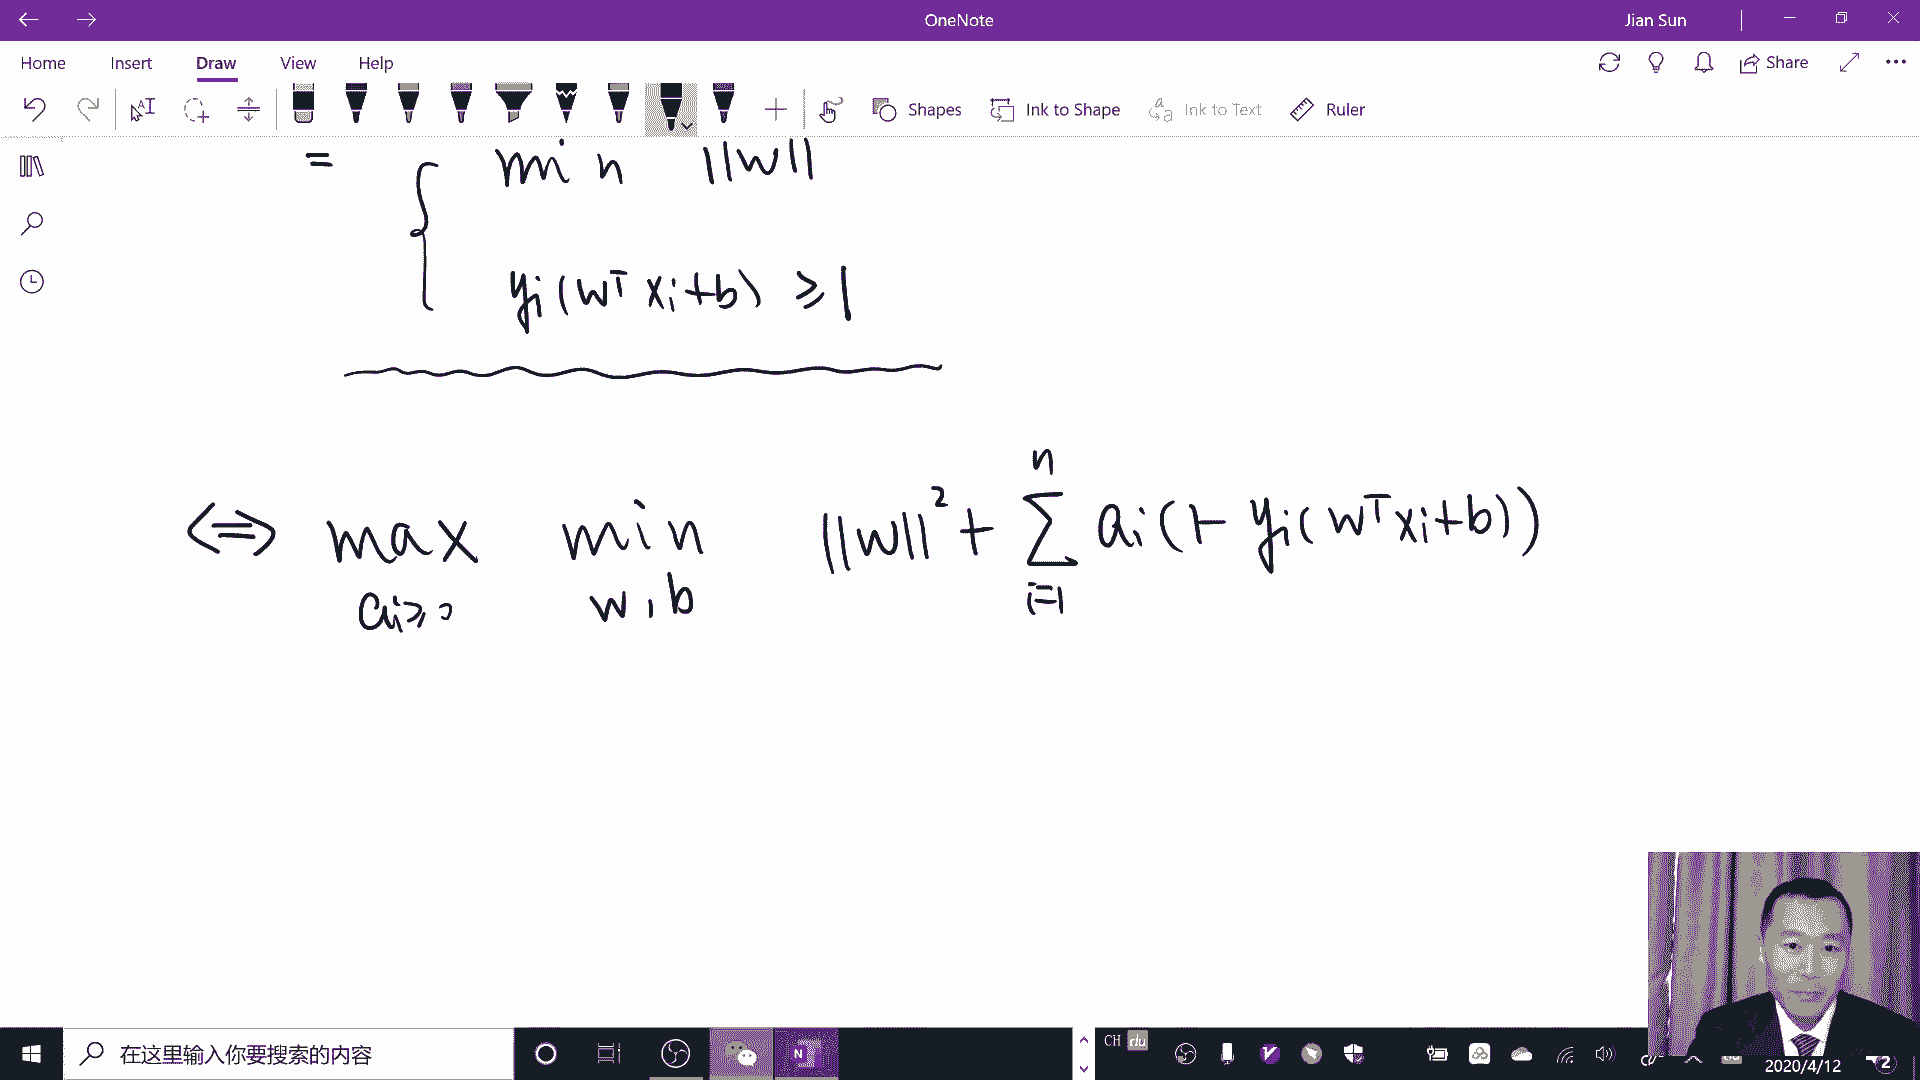 OneNote
Jian Sun
Home Insert Draw View Help
Share
Shapes Ink to Shape Ink to Text Ruler
= { min ||w||
yi(wᵀxi+b) ≥ 1
⇔ max min ||w||² + Σ ai(1- yi(wᵀxi+b))
ai≥0 w,b
n
i=1
在这里输入你要搜索的内容
CH du
2020/4/12
2